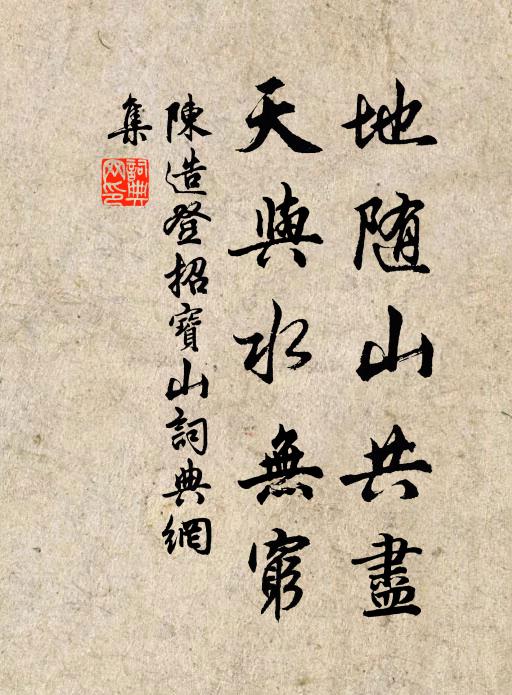 地随山共盡
天與水無窮
陳造登招寶山詞典網
集
詞典網印